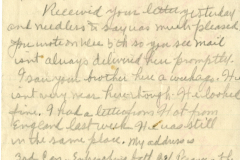 Received your letter yesterday
and needless to say was much pleased
you wrote on Nov 5th so you see mail
isn't always delivered here promptly.
I saw your brother here a week ago. He
isn't very near here though. He looked
fine. I had a letter from H from
England last week. He was still
in the same place. My address is